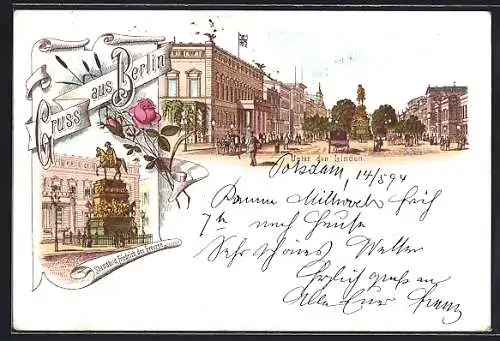 Gruss aus Berlin
Unter den Linden.
Standbild Friedrich des Grossen
Potsdam, 14/8 94
Komme Mittwoch früh
7 h nach Hause
Sehr schönes Wetter
Herzlich Gruß an
Alle Euer Franz